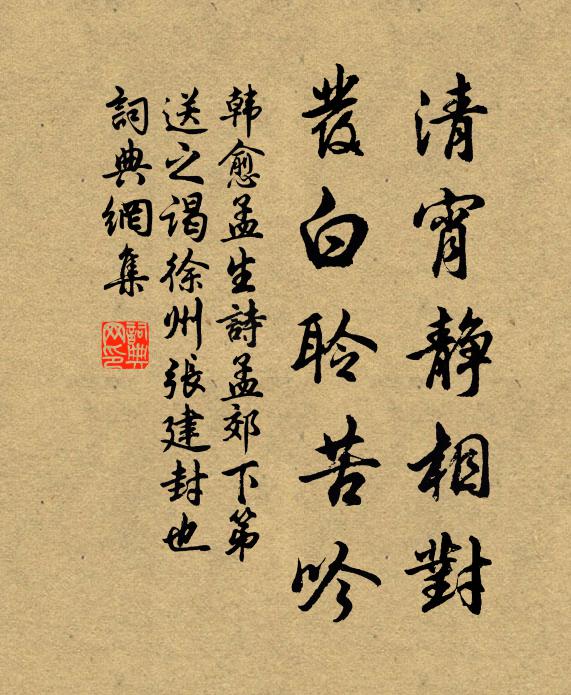 清宵靜相對
發白聆苦吟
韩愈孟生詩孟郊下第
送之谒徐州張建封也
詞典網集
詞典
网印